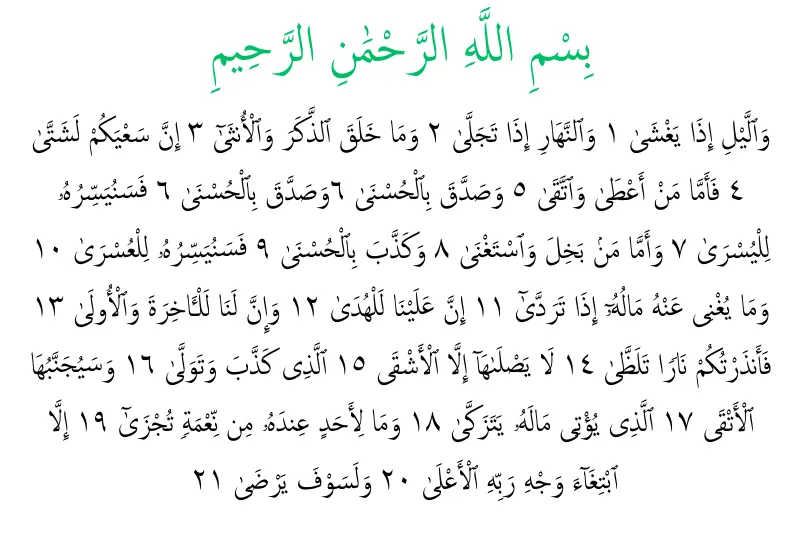 بِسْمِ اللَّهِ الرَّحْمَٰنِ الرَّحِيمِ
وَٱلَّيْلِ إِذَا يَغْشَىٰ ١ وَٱلنَّهَارِ إِذَا تَجَلَّىٰ ٢ وَمَا خَلَقَ ٱلذَّكَرَ وَٱلْأُنثَىٰٓ ٣ إِنَّ سَعْيَكُمْ لَشَتَّىٰ
٤ فَأَمَّا مَنْ أَعْطَىٰ وَٱتَّقَىٰ ٥ وَصَدَّقَ بِٱلْحُسْنَىٰ ٦وَصَدَّقَ بِٱلْحُسْنَىٰ ٦ فَسَنُيَسِّرُهُۥ
لِلْيُسْرَىٰ ٧ وَأَمَّا مَنۢ بَخِلَ وَٱسْتَغْنَىٰ ٨ وَكَذَّبَ بِٱلْحُسْنَىٰ ٩ فَسَنُيَسِّرُهُۥ لِلْعُسْرَىٰ ١٠
وَمَا يُغْنِى عَنْهُ مَالُهُۥٓ إِذَا تَرَدَّىٰٓ ١١ إِنَّ عَلَيْنَا لَلْهُدَىٰ ١٢ وَإِنَّ لَنَا لَلْـَٔاخِرَةَ وَٱلْأُولَىٰ ١٣
فَأَنذَرْتُكُمْ نَارًا تَلَظَّىٰ ١٤ لَا يَصْلَىٰهَآ إِلَّا ٱلْأَشْقَى ١٥ ٱلَّذِى كَذَّبَ وَتَوَلَّىٰ ١٦ وَسَيُجَنَّبُهَا
ٱلْأَتْقَى ١٧ ٱلَّذِى يُؤْتِى مَالَهُۥ يَتَزَكَّىٰ ١٨ وَمَا لِأَحَدٍ عِندَهُۥ مِن نِّعْمَةٍ تُجْزَىٰٓ ١٩ إِلَّا
ٱبْتِغَآءَ وَجْهِ رَبِّهِ ٱلْأَعْلَىٰ ٢٠ وَلَسَوْفَ يَرْضَىٰ ٢١